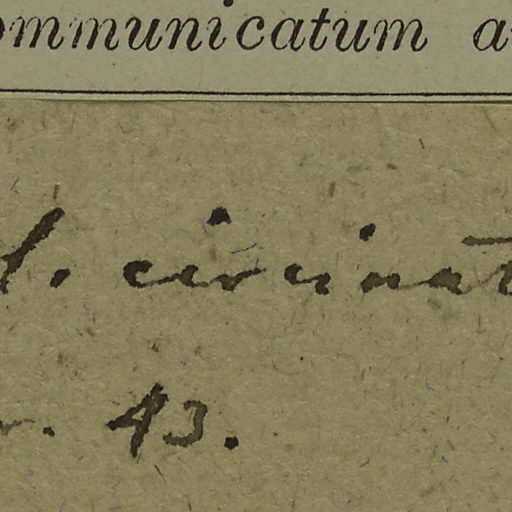 ommunicatum a
l. circinat
r. 43.